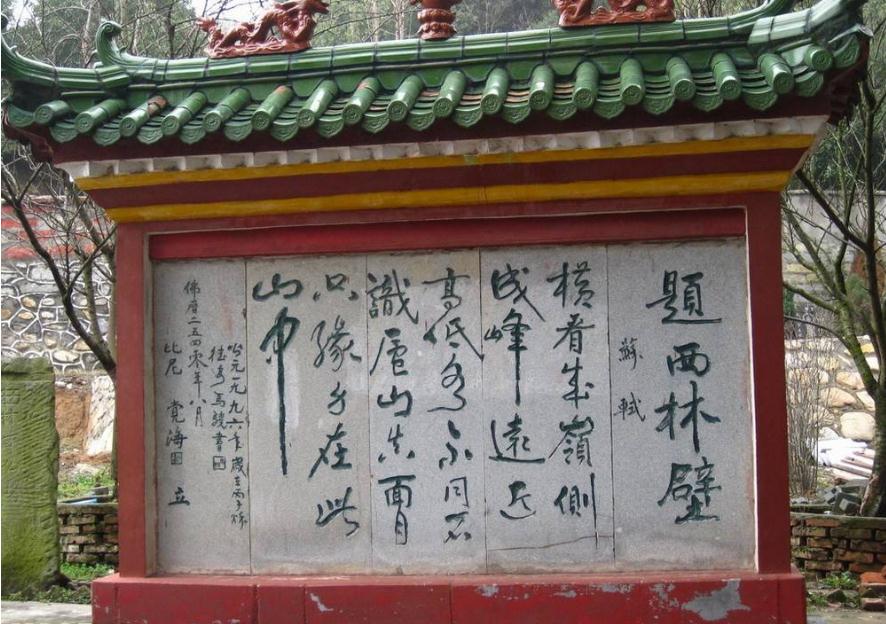 題西林壁
蘇軾
横看成嶺側
成峰遠近
高低各不同不
識廬山真面目
只緣身在此
山中
公元一九九六年歲在丙子秋
馬駿書
佛曆二五四零年八月
比尼 覺海 立